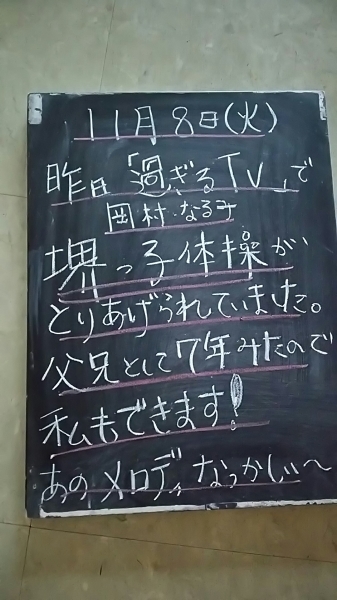 11月8日(火)
昨日「過ぎるTV」で
岡村・なる子
堺っ子体操が
とりあげられていました。
父兄として7年みたので
私もできます!
あのメロディなつかしい〜